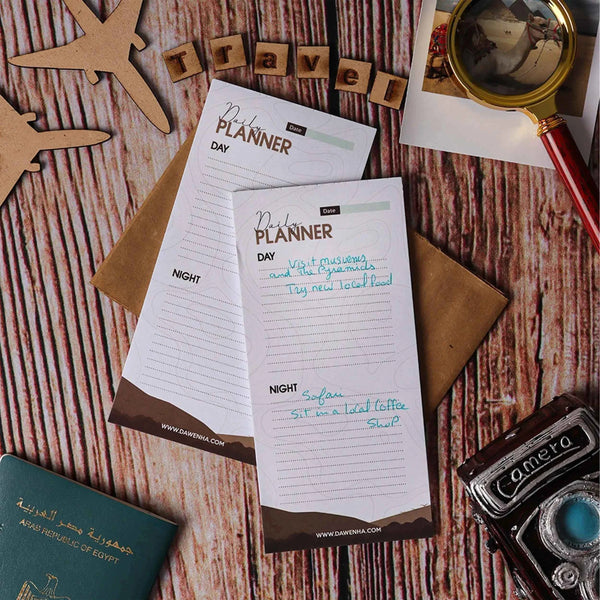 Travel
Daily
PLANNER
Date
DAY
NIGHT
WWW.DAWENHA.COM
Daily
PLANNER
Date
DAY
Visit museums
and the Pyramids
Try new local food
NIGHT
Safari
Sit in a local Coffee
Shop
WWW.DAWENHA.COM
Camera
جمهورية مصر العربية
ARAB REPUBLIC OF EGYPT